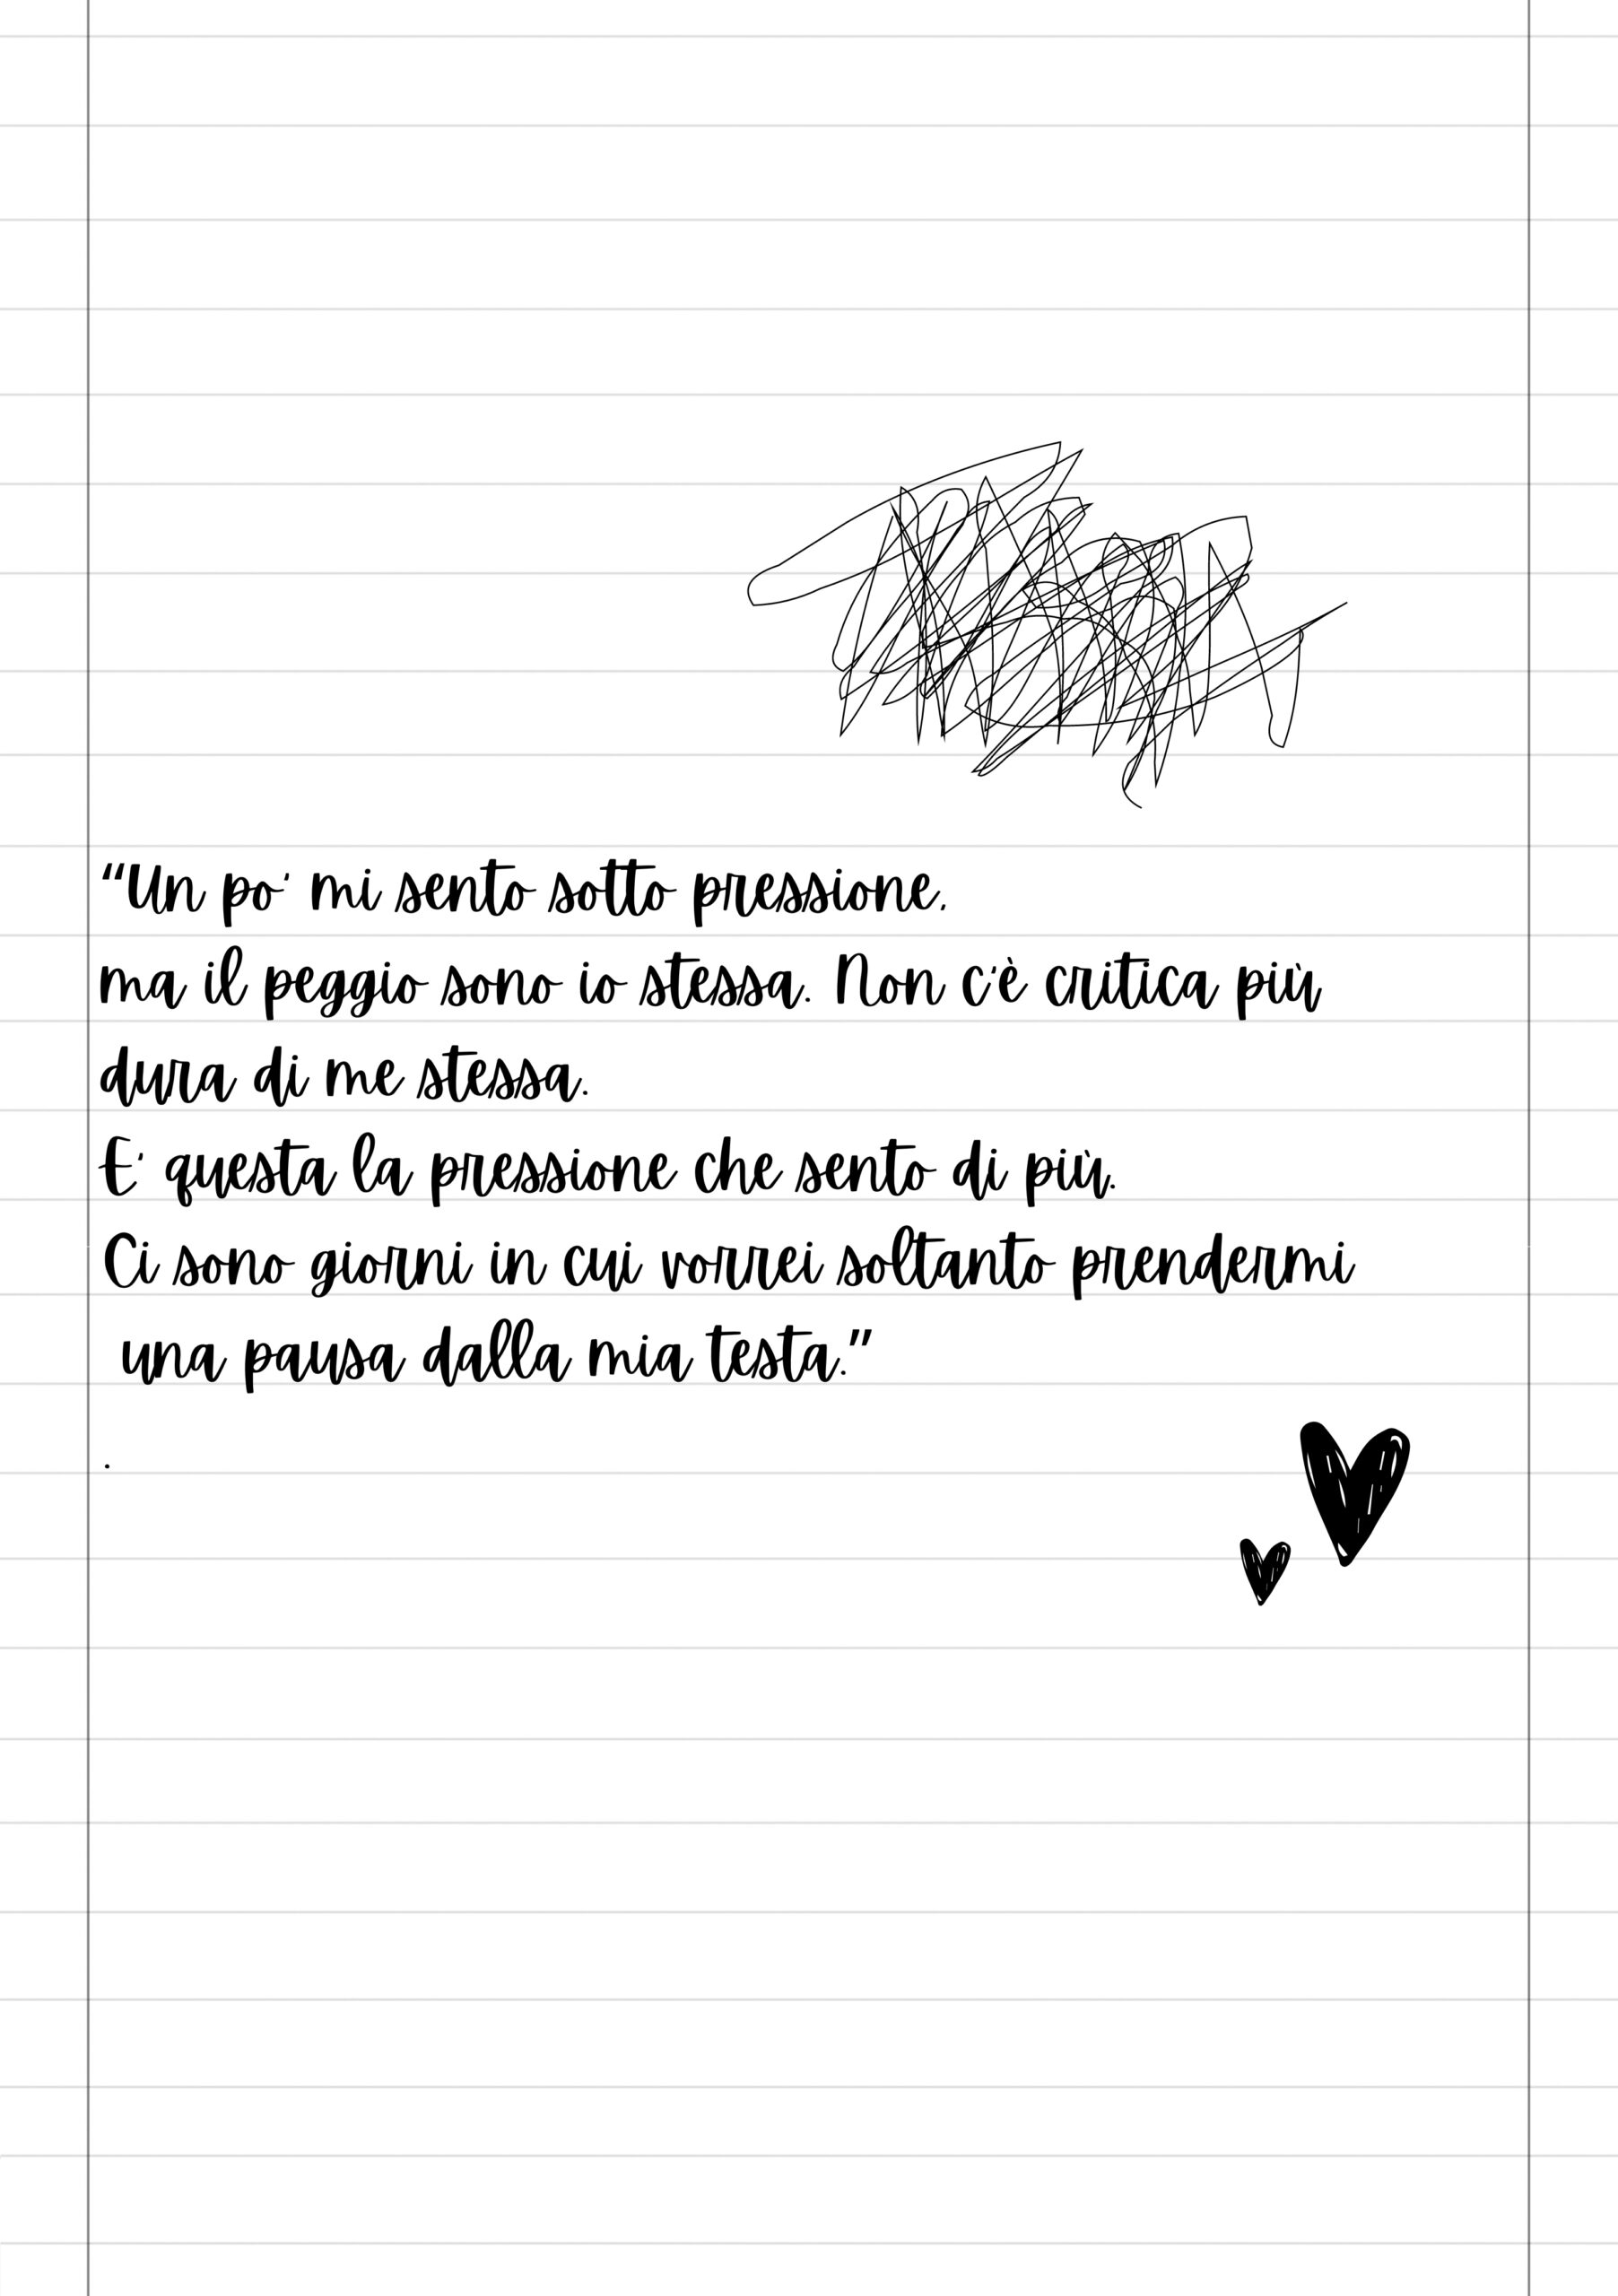 “Un po' mi sento sotto pressione,
ma il peggio sono io stessa. Non c'è critica più
dura di me stessa.
E' questa la pressione che sento di più.
Ci sono giorni in cui vorrei soltanto prendermi
una pausa dalla mia testa.”
.